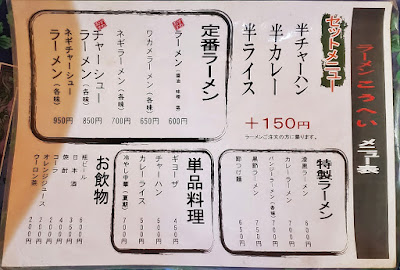 ラーメンころへい メニュー表
セットメニュー
半チャーハン
半カレー
半ライス
+150円
ラーメンご注文の方に限ります。
定番ラーメン
ラーメン(醤油 味噌 塩) 600円
ワカメラーメン(各味) 650円
ネギラーメン(各味) 700円
チャーシューラーメン(各味) 850円
ネギチャーシューラーメン(各味) 950円
特製ラーメン
カレーラーメン
単品料理
ギョーザ 450円
チャーハン 500円
カレーライス 500円
冷やし中華(夏期) 700円
お飲物
瓶ビール
日本酒
焼酎
コーラ 200円
オレンジジュース 200円
ウーロン茶 200円